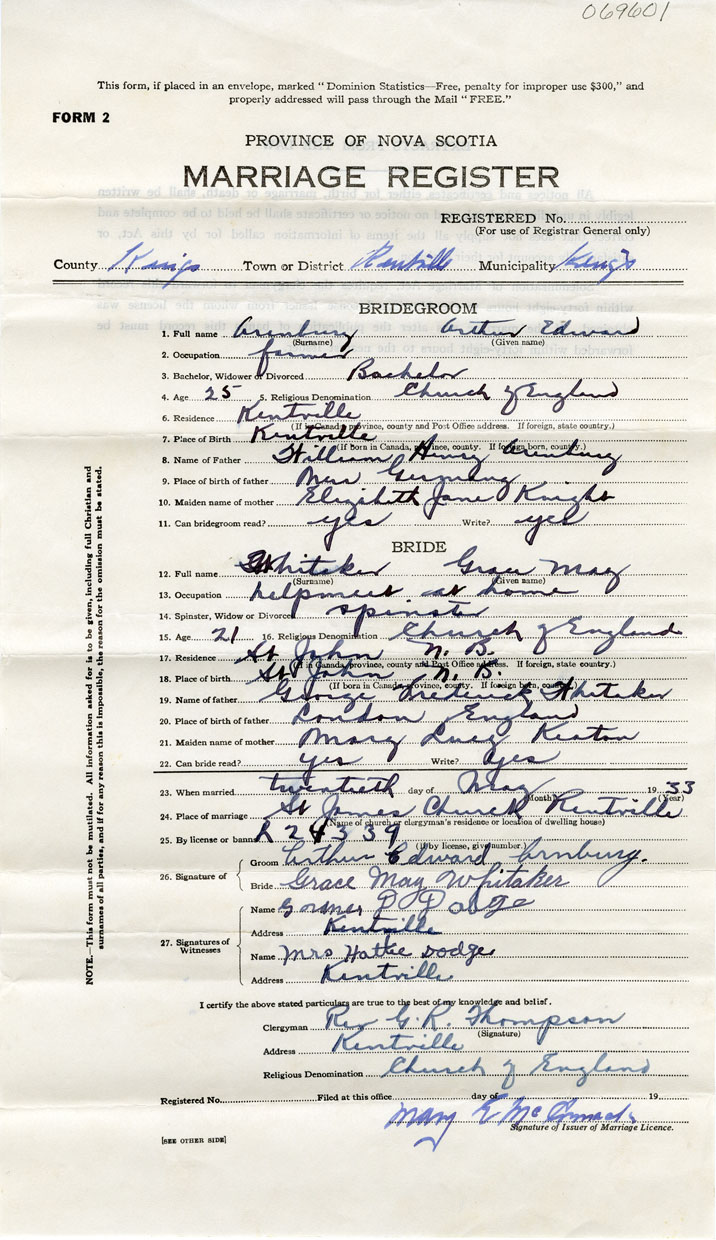 069601
This form, if placed in an envelope, marked "Dominion Statistics—Free, penalty for improper use $300," and
properly addressed will pass through the Mail "FREE."
FORM 2
PROVINCE OF NOVA SCOTIA
MARRIAGE REGISTER
REGISTERED No.
(For use of Registrar General only)
County Kings Town or District Kentville Municipality Kings
BRIDEGROOM
1. Full name Arenburg Arthur Edward
(Surname) (Given name)
2. Occupation farmer
3. Bachelor, Widower or Divorced Bachelor
4. Age 25 5. Religious Denomination Church of England
6. Residence Kentville
(If in Canada, province, county and Post Office address. If foreign, state country.)
7. Place of Birth Kentville
(If born in Canada, province, county. If foreign born, country.)
8. Name of Father William Henry Arenburg
9. Place of birth of father Germany
10. Maiden name of mother Elizabeth Jane Knight
11. Can bridegroom read? yes Write? yes
BRIDE
12. Full name Whitaker Grace May
(Surname) (Given name)
13. Occupation helpmeet at home
14. Spinster, Widow or Divorced spinster
15. Age 21 16. Religious Denomination Church of England
17. Residence St John N. B.
(If in Canada, province, county and Post Office address. If foreign, state country.)
18. Place of birth St John N. B.
(If born in Canada, province, county. If foreign born, country.)
19. Name of father George Frederick Whitaker
20. Place of birth of father London England
21. Maiden name of mother Mary Lucy Keaton
22. Can bride read? yes Write? yes
23. When married twentieth day of May 1933
(Month) (Year)
24. Place of marriage St James Church Kentville
(Name of church or clergyman's residence or location of dwelling house)
25. By license or banns R 24339
(If by license, give number.)
26. Signature of
Groom Arthur Edward Arnburg.
Bride Grace May Whitaker
27. Signatures of Witnesses
Name D Dodge
Address Kentville
Name Mrs Hattie Dodge
Address Kentville
I certify the above stated particulars are true to the best of my knowledge and belief.
Clergyman Rev G. R. Thompson
(Signature)
Address Kentville
Religious Denomination Church of England
Registered No. Filed at this office day of 19
Mary E McCormack
Signature of Issuer of Marriage Licence.
[SEE OTHER SIDE]
NOTE.—This form must not be mutilated. All information asked for is to be given, including full Christian and
surnames of all parties, and if for any reason this is impossible, the reason for the omission must be stated.